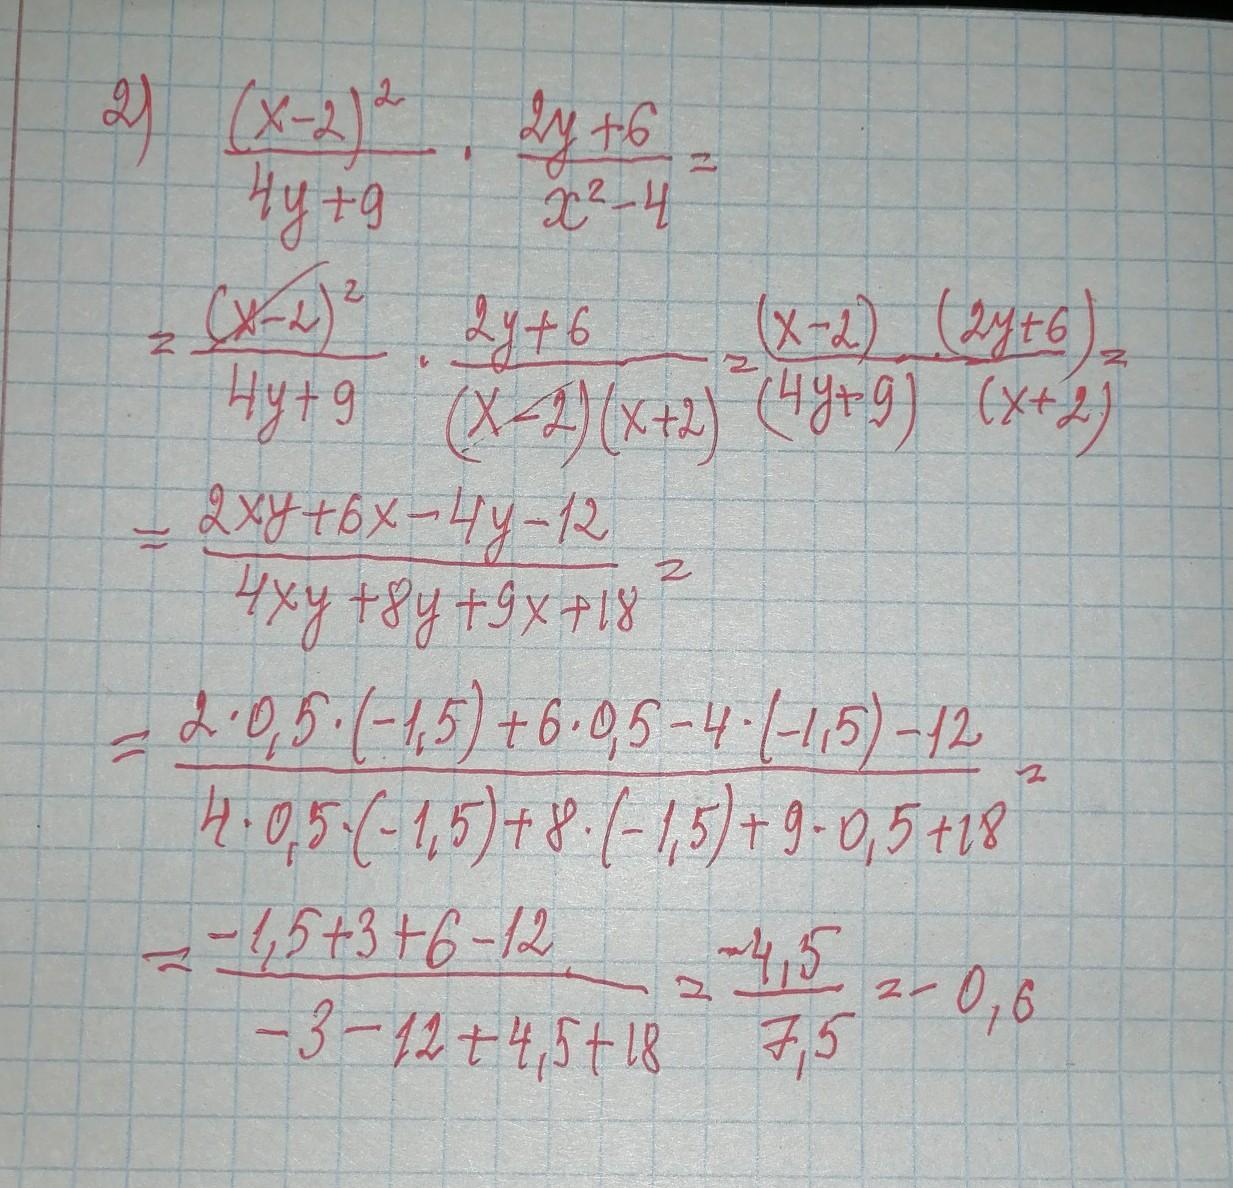 2) (x-2)² / 4y+9 · 2y+6 / x²-4 =
= (x-2)² / 4y+9 · 2y+6 / (x-2)(x+2) = (x-2) (2y+6) / (4y+9) (x+2) =
= 2xy+6x-4y-12 / 4xy+8y+9x+18 =
= 2·0,5·(-1,5)+6·0,5-4·(-1,5)-12 / 4·0,5·(-1,5)+8·(-1,5)+9·0,5+18 =
= -1,5+3+6-12 / -3-12+4,5+18 = -4,5 / 7,5 = -0,6